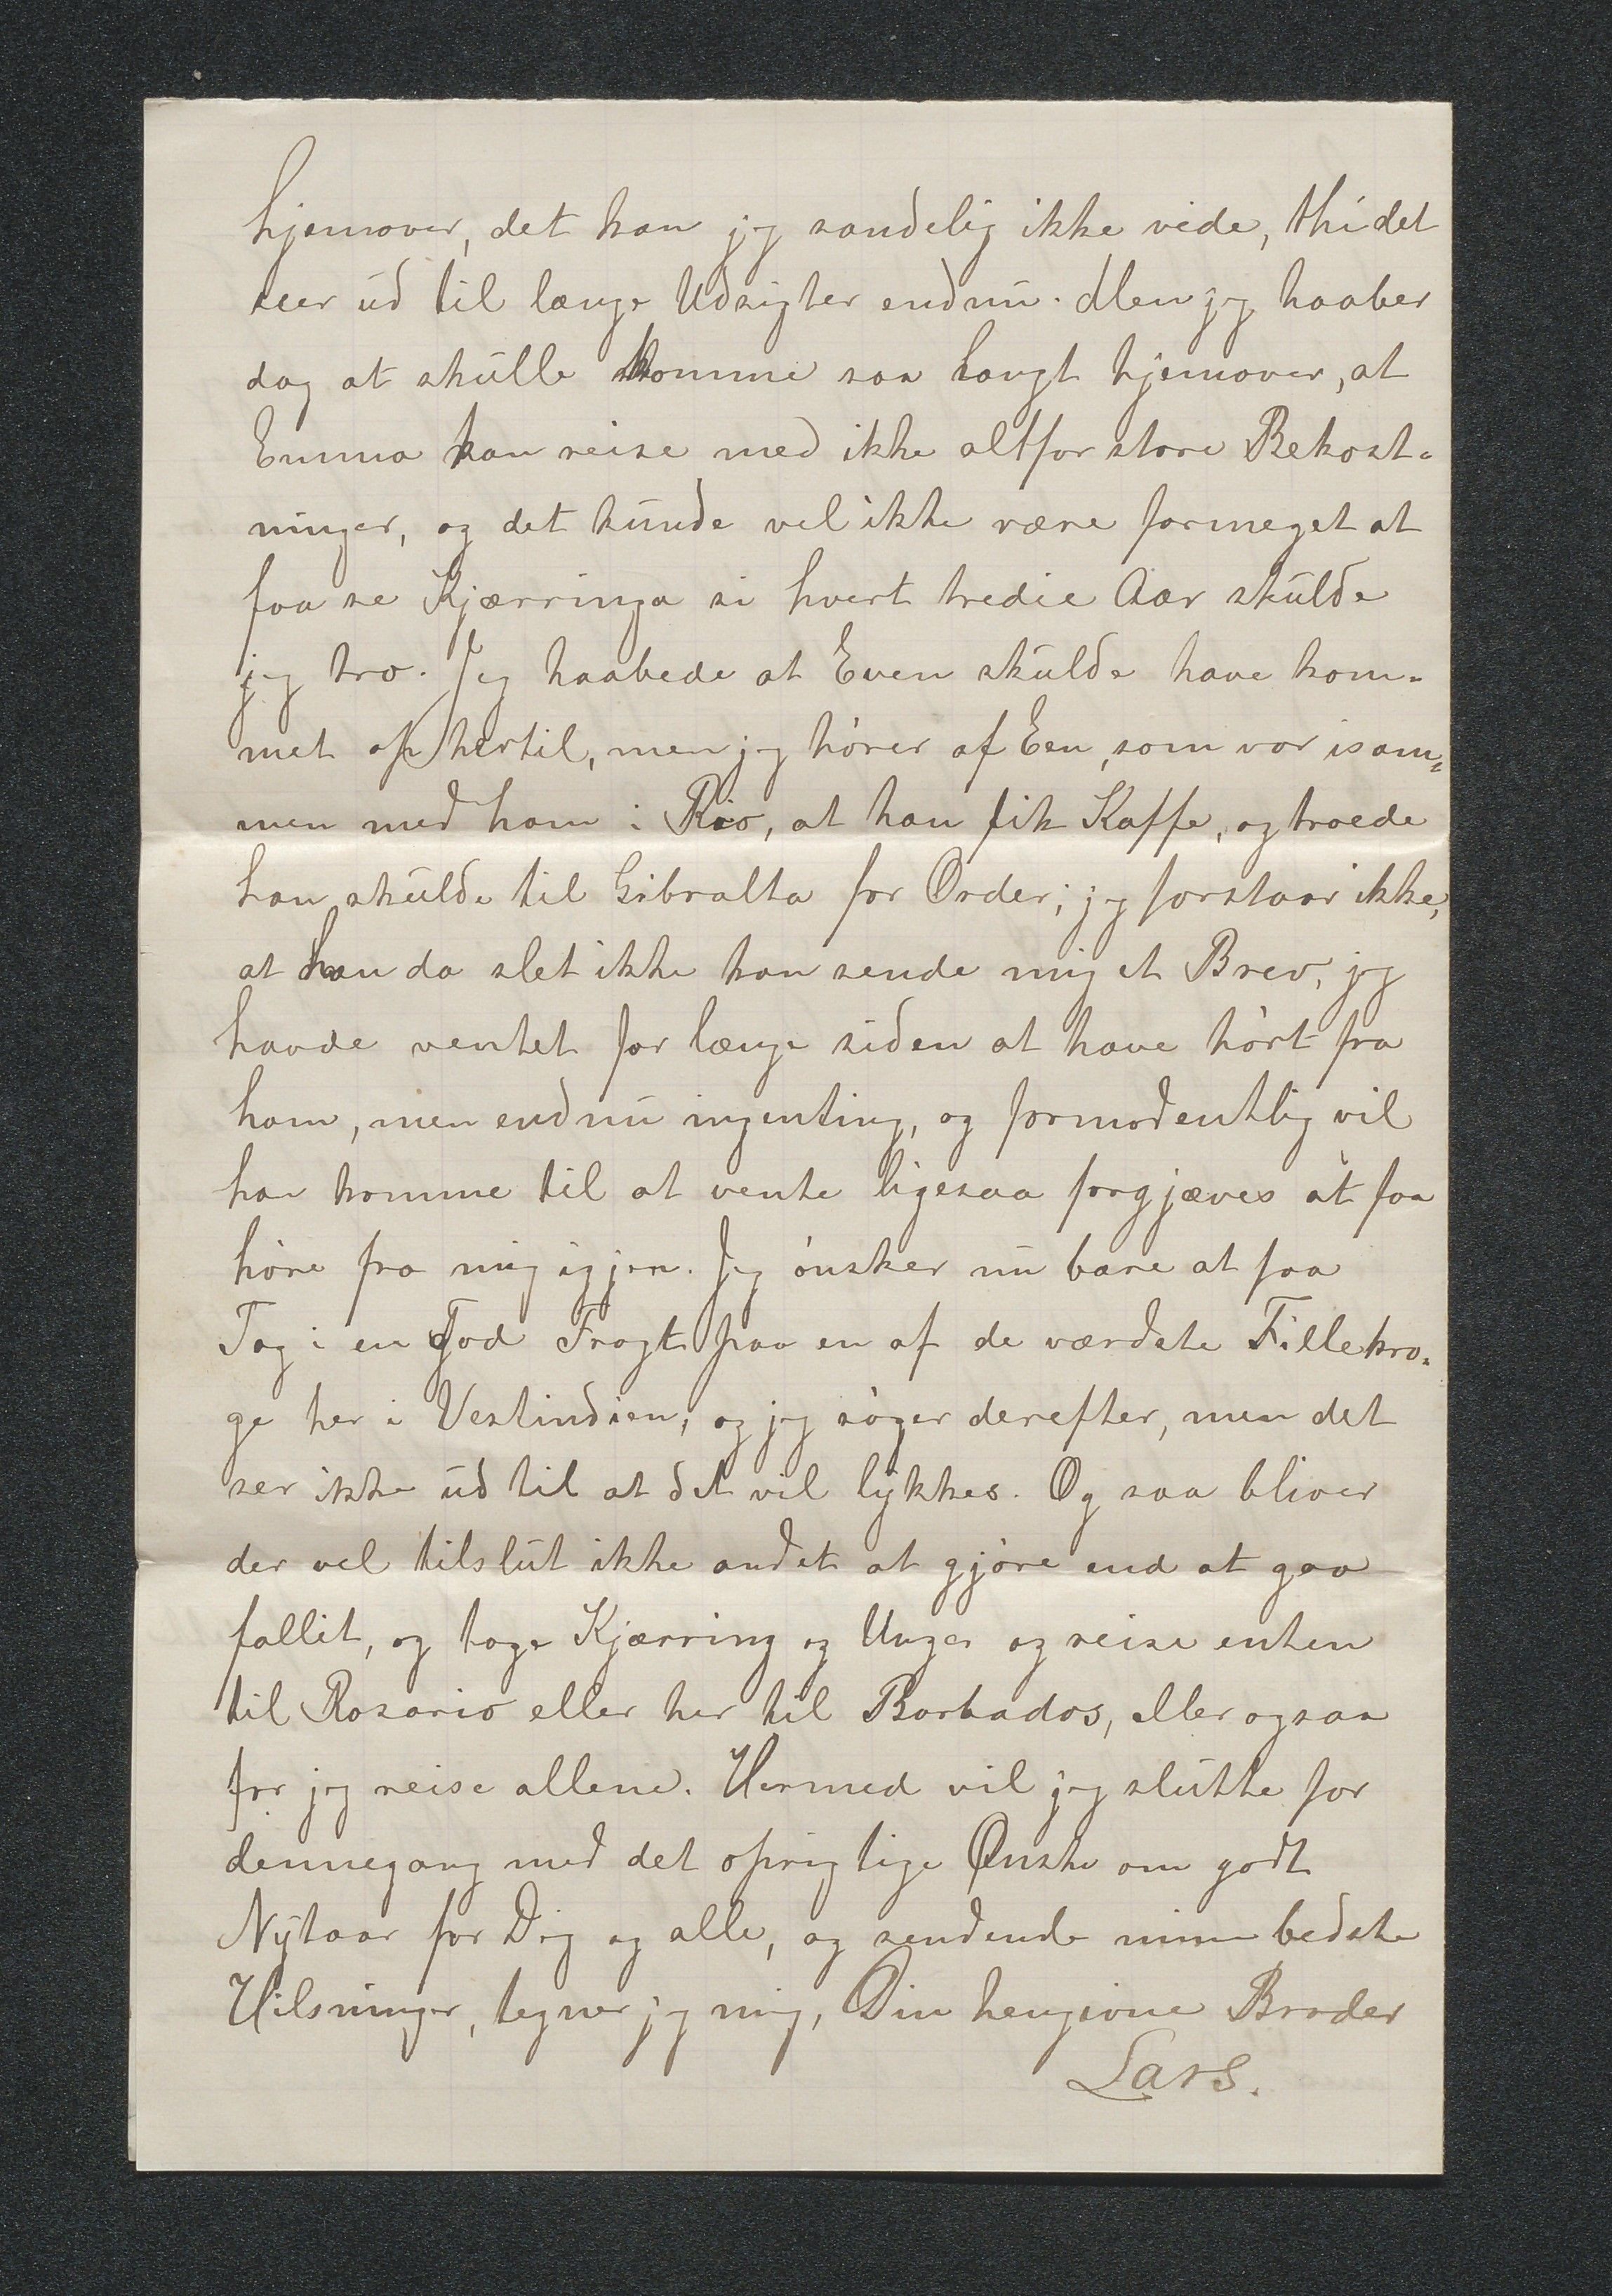 hjemover, det kan jeg sandelig ikke vide, thi det
seer ud til længe Udsigter endnu. Men jeg haaber
dog at skulle komme saa langt hjemover, at
Emma kan reise med ikke altfor store Bekost-
ninger, og det kunde vel ikke være formeget at
faa se Kjærringa si hvert tredie Aar skulde
jeg tro. Jeg haabede at Even skulde have kom-
met op hertil, men jeg hører af Een, som var isam-
men med ham i Rio, at han fik Kaffe, og troede
han skulde til Gibralta for Order; jeg forstaar ikke,
at han da slet ikke kan sende mig et Brev, jeg
havde ventet for længe siden at have hørt fra
ham, men endnu ingenting, og formodentlig vil
han komme til at vente ligesaa forgjæves at faa
høre fra mig igjen. Jeg ønsker nu bare at faa
Tag i en god Fragt paa en af de værdste Fillekro-
ge her i Vestindien, og jeg søger derefter, men det
ser ikke ud til at det vil lykkes. Og saa bliver
der vel tilslut ikke andet at gjøre end at gaa
fallit, og tage Kjærring og Unger og reise enten
til Rosario eller her til Barbados, eller ogsaa
før jeg reise allene. Hermed vil jeg slutte for
dennegang med det oprigtige Ønske om godt
Nytaar for Dig og alle, og sendende mine bedste
Hilsninger, tegner jeg mig, Din hengivne Broder
Lars.